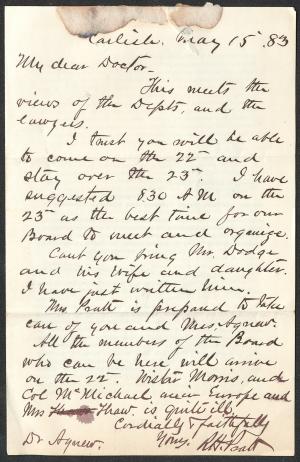 Carlisle. May 15. 83
My dear Doctor—
This meets the
views of the Depts, and the
lawyers.
I trust you will be able
to come on the 22" and
stay over the 23". I have
suggested 8 30 A M on the
23" as the best time for our
Board to meet and organize.
Cant you bring Mr. Dodge
and his wife and daughter.
I have just written him.
Mrs Pratt is prepared to take
care of you and Mrs. Agnew.
All the members of the Board
who can be here will arrive
on the 22". Wistar Morris, and
Col McMichael, are in Europe and
Mrs Thaw, is quite ill.
Cordially & faithfully
Dr Agnew. Yours, R H Pratt